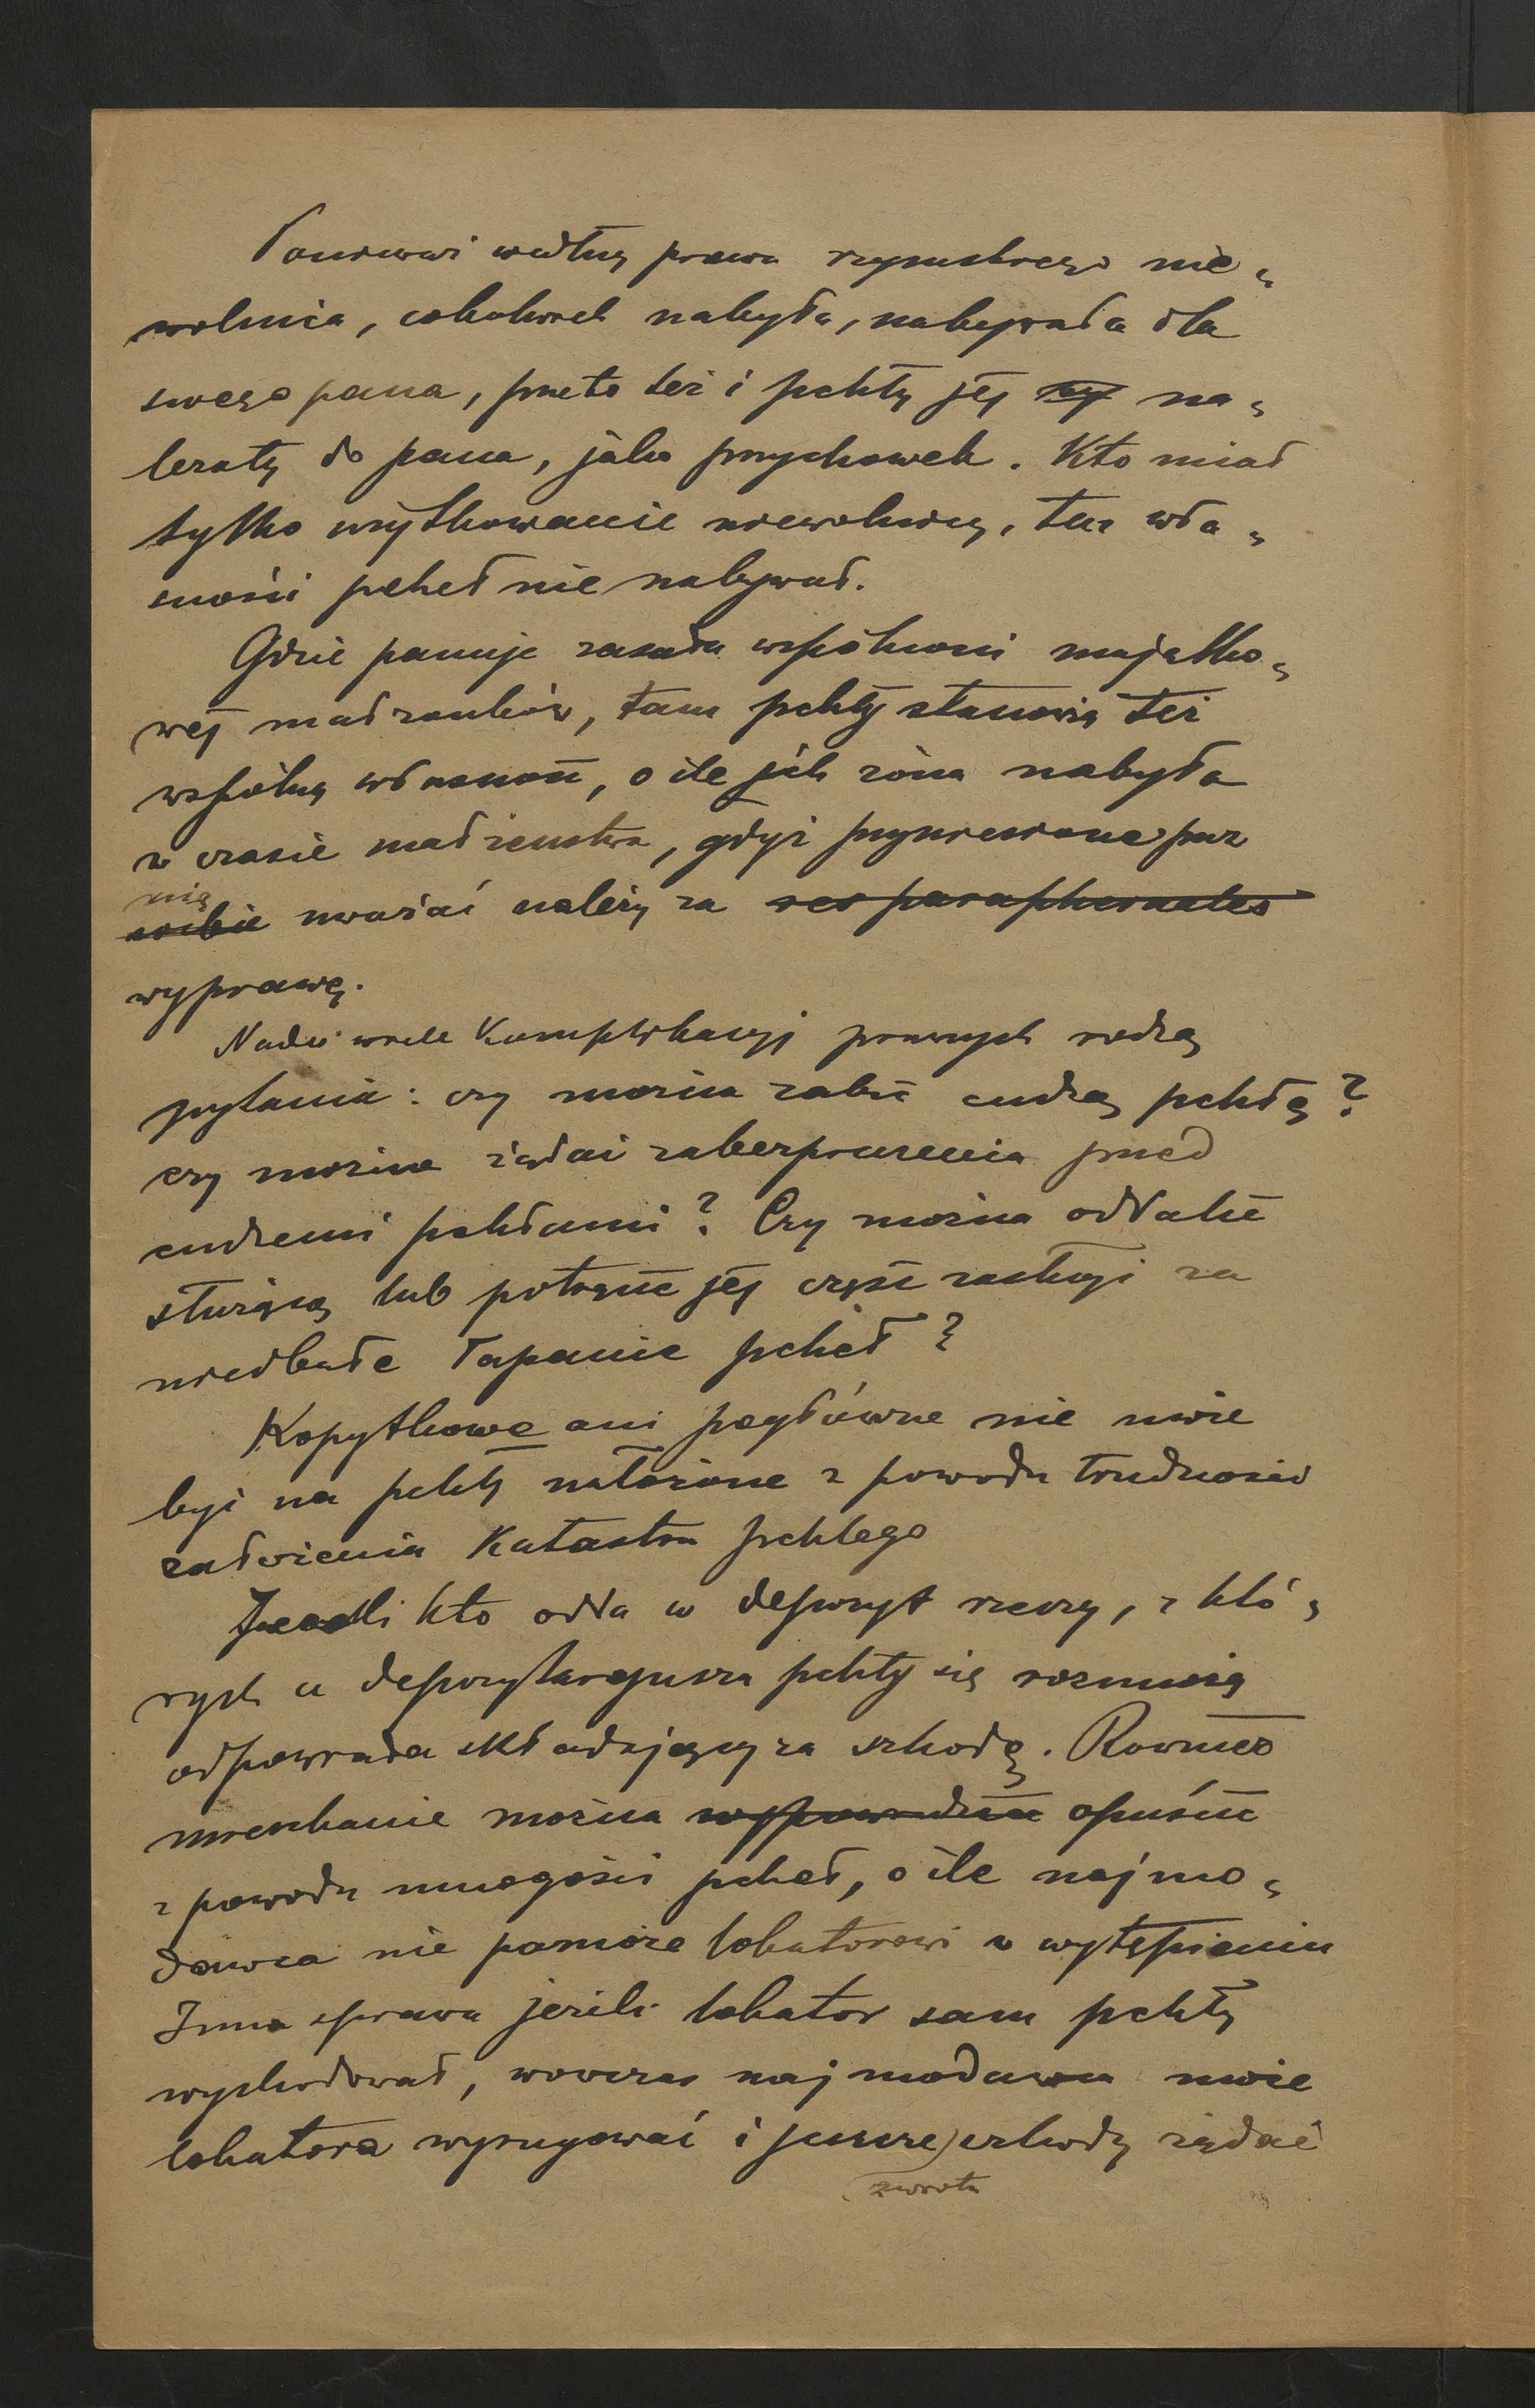 Ponieważ według prawa rzymskiego nie-
wolnica, cokolwiek nabyła, nabywała dla
swego pana, przeto też i pchły jej na-
leżały do pana, jako przychowek. Kto miał
tylko użytkowanie niewolnicy, ten wła-
sności pcheł nie nabywał.
Gdzie panuje zasada wspólności majątko-
wej małżonków, tam pchły stanowią też
wspólną własność, o ile jich żona nabyła
w czasie małżeństwa, gdyż przyniesione przez
nią
sobie uważać należy za res paraphernales
wyprawę.
Nader wiele Komplikacyj prawnych rodzą
pytania: czy można zabić cudzą pchłę?
czy można żądać zabezpieczenia przed
cudzemi pchłami? Czy można oddalić
służącą lub potrącić jej część zasługi za
niedbałe łapanie pcheł?
Kopytkowe ani pogłówne nie może
być na pchły nałożone z powodu trudności
założenia Katastru pchlego
Jeżeli kto odda w depozyt rzeczy, z któ-
rych u depozytarjusza pchły się rozmnożą
odpowiada składający za szkodę. Również
mieszkanie można wypowiedzieć opuścić
z powodu mnogości pcheł, o ile najmo-
dawca nie pomoże lokatorowi w wytępieniu
Inna sprawa jeżeli lokator sam pchły
wyhodował, wówczas najmodawca może
lokatora wyrugować i jeszcze szkody żądać
zwrotu